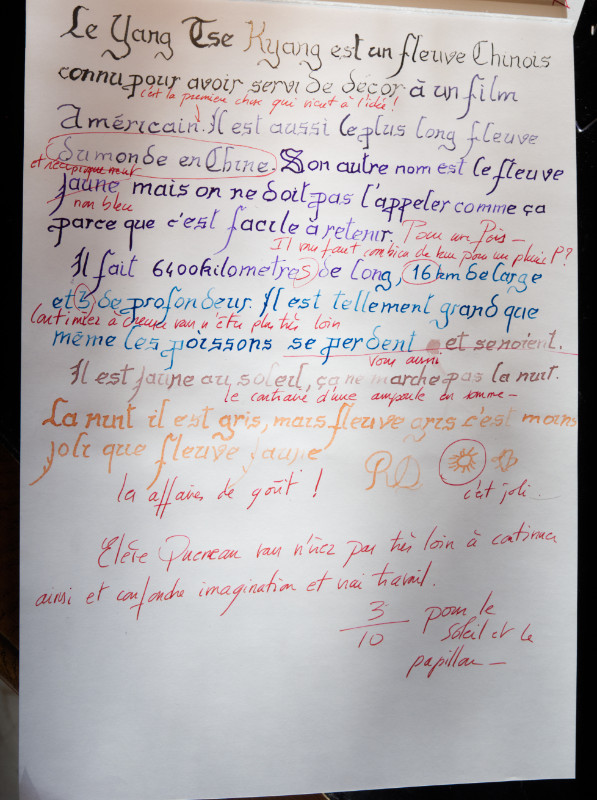 Le Yang Tse Kyang est un fleuve Chinois
connu pour avoir servi de décor à un film
c'est la première chose qui vient à l'idée !
Américain. Il est aussi le plus long fleuve
du monde en Chine. Son autre nom est le fleuve
et réciproquement
jaune mais on ne doit pas l'appeler comme ça
non bleu
parce que c'est facile à retenir. Pour un Pois –
Il vous faut combien de km pour un pluriel ?
Il fait 6400 kilometres de long, 16 km de large
et 3 de profondeur. Il est tellement grand que
Continuez à vous n'êtes plus très loin
même les poissons se perdent et se noient.
vous aussi
Il est jaune au soleil, ça ne marche pas la nuit.
le contraire d'une ampoule en somme –
La nuit il est gris, mais fleuve gris c'est moins
joli que fleuve jaune
RD
la affaires de goût !
c'est joli.
Elève Queneau vous n'irez pas très loin à continuer
ainsi et confondre imagination et vrai travail.
3/10 pour le
soleil et le
papillon –